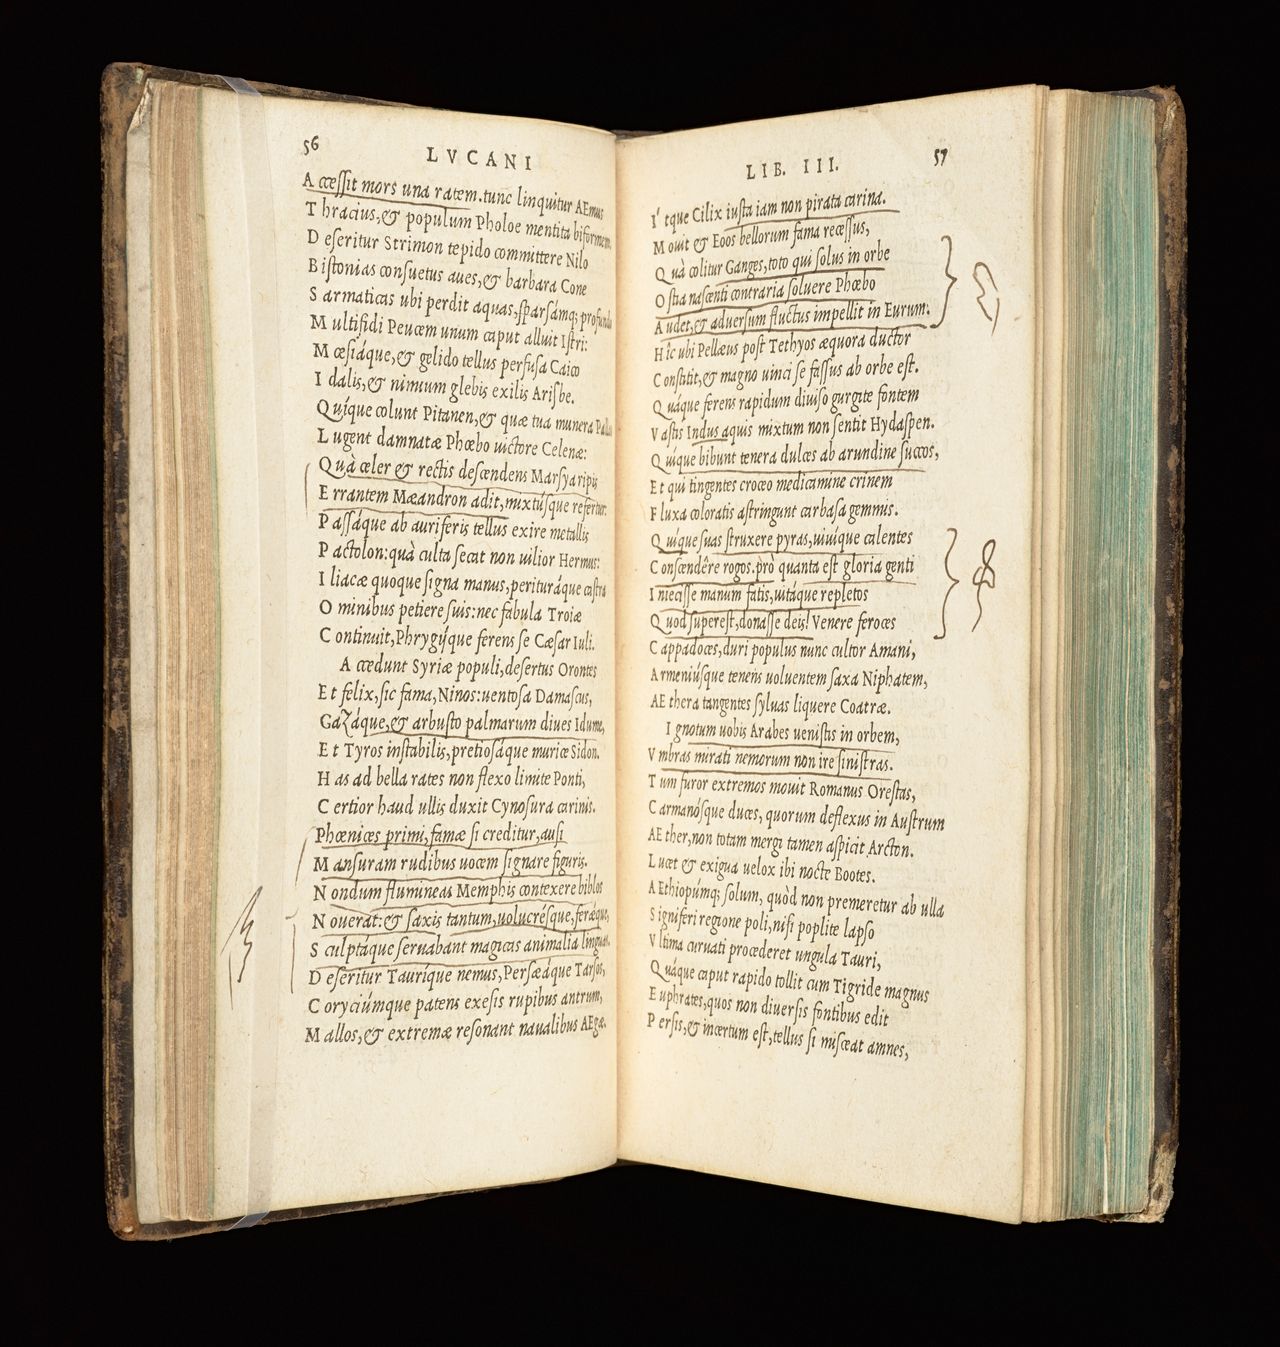 56
LVCANI
Accessit mors una ratem. tunc linquitur AEmus
Thracius, & populum Pholoe mentita biformem.
Deseritur Strimon tepido committere Nilo
Bistonias consuetus aues, & barbara Cone
Sarmaticas ubi perdit aquas, sparsámq; profunda
Multifidi Peucem unum caput alluit Istri:
Mœsiáque, & gelido tellus perfusa Caico
Idalis, & nimium glebis exilis Arisbe.
Quíque colunt Pitanen, & quæ tua munera Pallas
Lugent damnatæ Phœbo uictore Celenæ:
Quà celer & rectis descendens Marsya ripis
Errantem Mæandron adit, mixtúsque refertur.
Passáque ab auriferis tellus exire metallis
Pactolon: quà culta secat non uilior Hermus:
Iliacæ quoque signa manus, perituráque castra
Ominibus petiere suis: nec fabula Troiæ
Continuit, Phrygijque ferens se Cæsar Iuli.
Accedunt Syriæ populi, desertus Orontes
Et felix, sic fama, Ninos: uentosa Damascus,
Gazáque, & arbusto palmarum diues Idume,
Et Tyros instabilis, pretiosáque murice Sidon.
Has ad bella rates non flexo limite Ponti,
Certior haud ullis duxit Cynosura carinis.
Phœnices primi, famæ si creditur, ausi
Mansuram rudibus uocem signare figuris.
Nondum flumineas Memphis contexere biblos
Nouerat: & saxis tantum, uolucrésque, feræque,
Sculptáque seruabant magicas animalia linguas.
Deseritur Tauríque nemus, Perseáque Tarsos,
Coryciúmque patens exesis rupibus antrum,
Mallos, & extremæ resonant naualibus AEgæ.
LIB. III.
57
Itque Cilix iusta iam non pirata carina.
Mouit & Eoos bellorum fama recessus,
Quà colitur Ganges, toto qui solus in orbe
Ostia nascenti contraria soluere Phœbo
Audet, & aduersum fluctus impellit in Eurum:
Hîc ubi Pellæus post Tethyos æquora ductor
Constitit, & magno uinci se fassus ab orbe est.
Quáque ferens rapidum diuiso gurgite fontem
Vastis Indus aquis mixtum non sentit Hydaspen.
Quíque bibunt tenera dulces ab arundine succos,
Et qui tingentes croceo medicamine crinem
Fluxa coloratis astringunt carbasa gemmis.
Quíque suas struxere pyras, uiuíque calentes
Conscendêre rogos. prò quanta est gloria genti
Iniecisse manum fatis, uitáque repletos
Quod superest, donasse deis! Venere feroces
Cappadoces, duri populus nunc cultor Amani,
Armeniúsque tenens uoluentem saxa Niphatem,
AEthera tangentes syluas liquere Coatræ.
Ignotum uobis Arabes uenistis in orbem,
Vmbras mirati nemorum non ire sinistras.
Tum furor extremos mouit Romanus Orestas,
Carmanósque duces, quorum deflexus in Austrum
AEther, non totam mergi tamen aspicit Arcton.
Lucet & exigua uelox ibi nocte Bootes.
AEthiopúmq; solum, quòd non premeretur ab ulla
Signiferi regione poli, nisi poplite lapso
Vltima curuati procederet ungula Tauri,
Quáque caput rapido tollit cum Tigride magnus
Euphrates, quos non diuersis fontibus edit
Persis, & incertum est, tellus si misceat amnes,